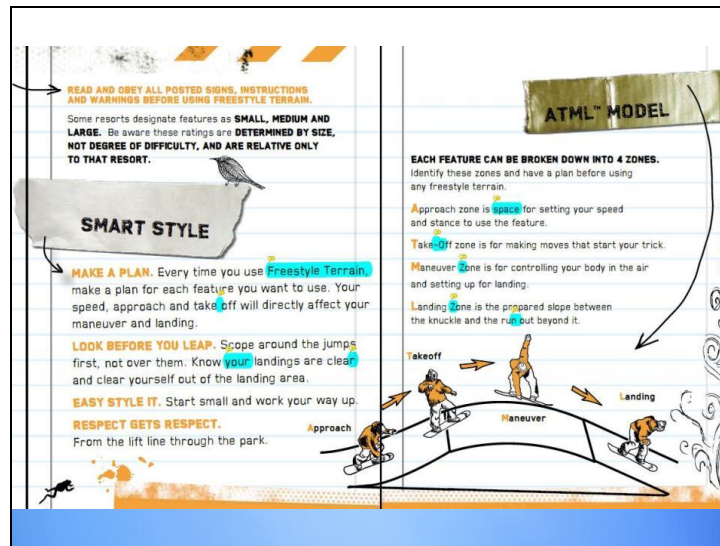 READ AND OBEY ALL POSTED SIGNS, INSTRUCTIONS
AND WARNINGS BEFORE USING FREESTYLE TERRAIN.
Some resorts designate features as SMALL, MEDIUM AND
LARGE. Be aware these ratings are DETERMINED BY SIZE,
NOT DEGREE OF DIFFICULTY, AND ARE RELATIVE ONLY
TO THAT RESORT.
SMART STYLE
MAKE A PLAN. Every time you use Freestyle Terrain,
make a plan for each feature you want to use. Your
speed, approach and take off will directly affect your
maneuver and landing.
LOOK BEFORE YOU LEAP. Scope around the jumps
first, not over them. Know your landings are clear
and clear yourself out of the landing area.
EASY STYLE IT. Start small and work your way up.
RESPECT GETS RESPECT.
From the lift line through the park.
ATML™ MODEL
EACH FEATURE CAN BE BROKEN DOWN INTO 4 ZONES.
Identify these zones and have a plan before using
any freestyle terrain.
Approach zone is space for setting your speed
and stance to use the feature.
Take-Off zone is for making moves that start your trick.
Maneuver Zone is for controlling your body in the air
and setting up for landing.
Landing Zone is the prepared slope between
the knuckle and the run out beyond it.
Approach
Takeoff
Maneuver
Landing